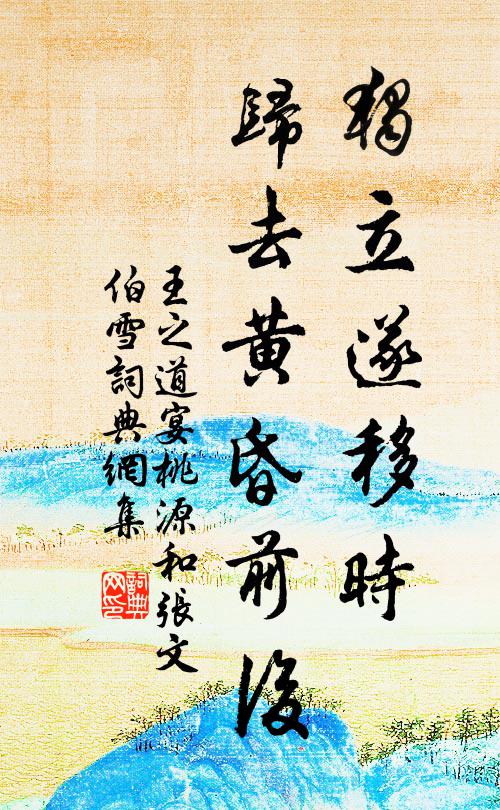 獨立遂移時
歸去黃昏前後
王之道宴桃源和張文
伯雪詞典網集
詞典
网印